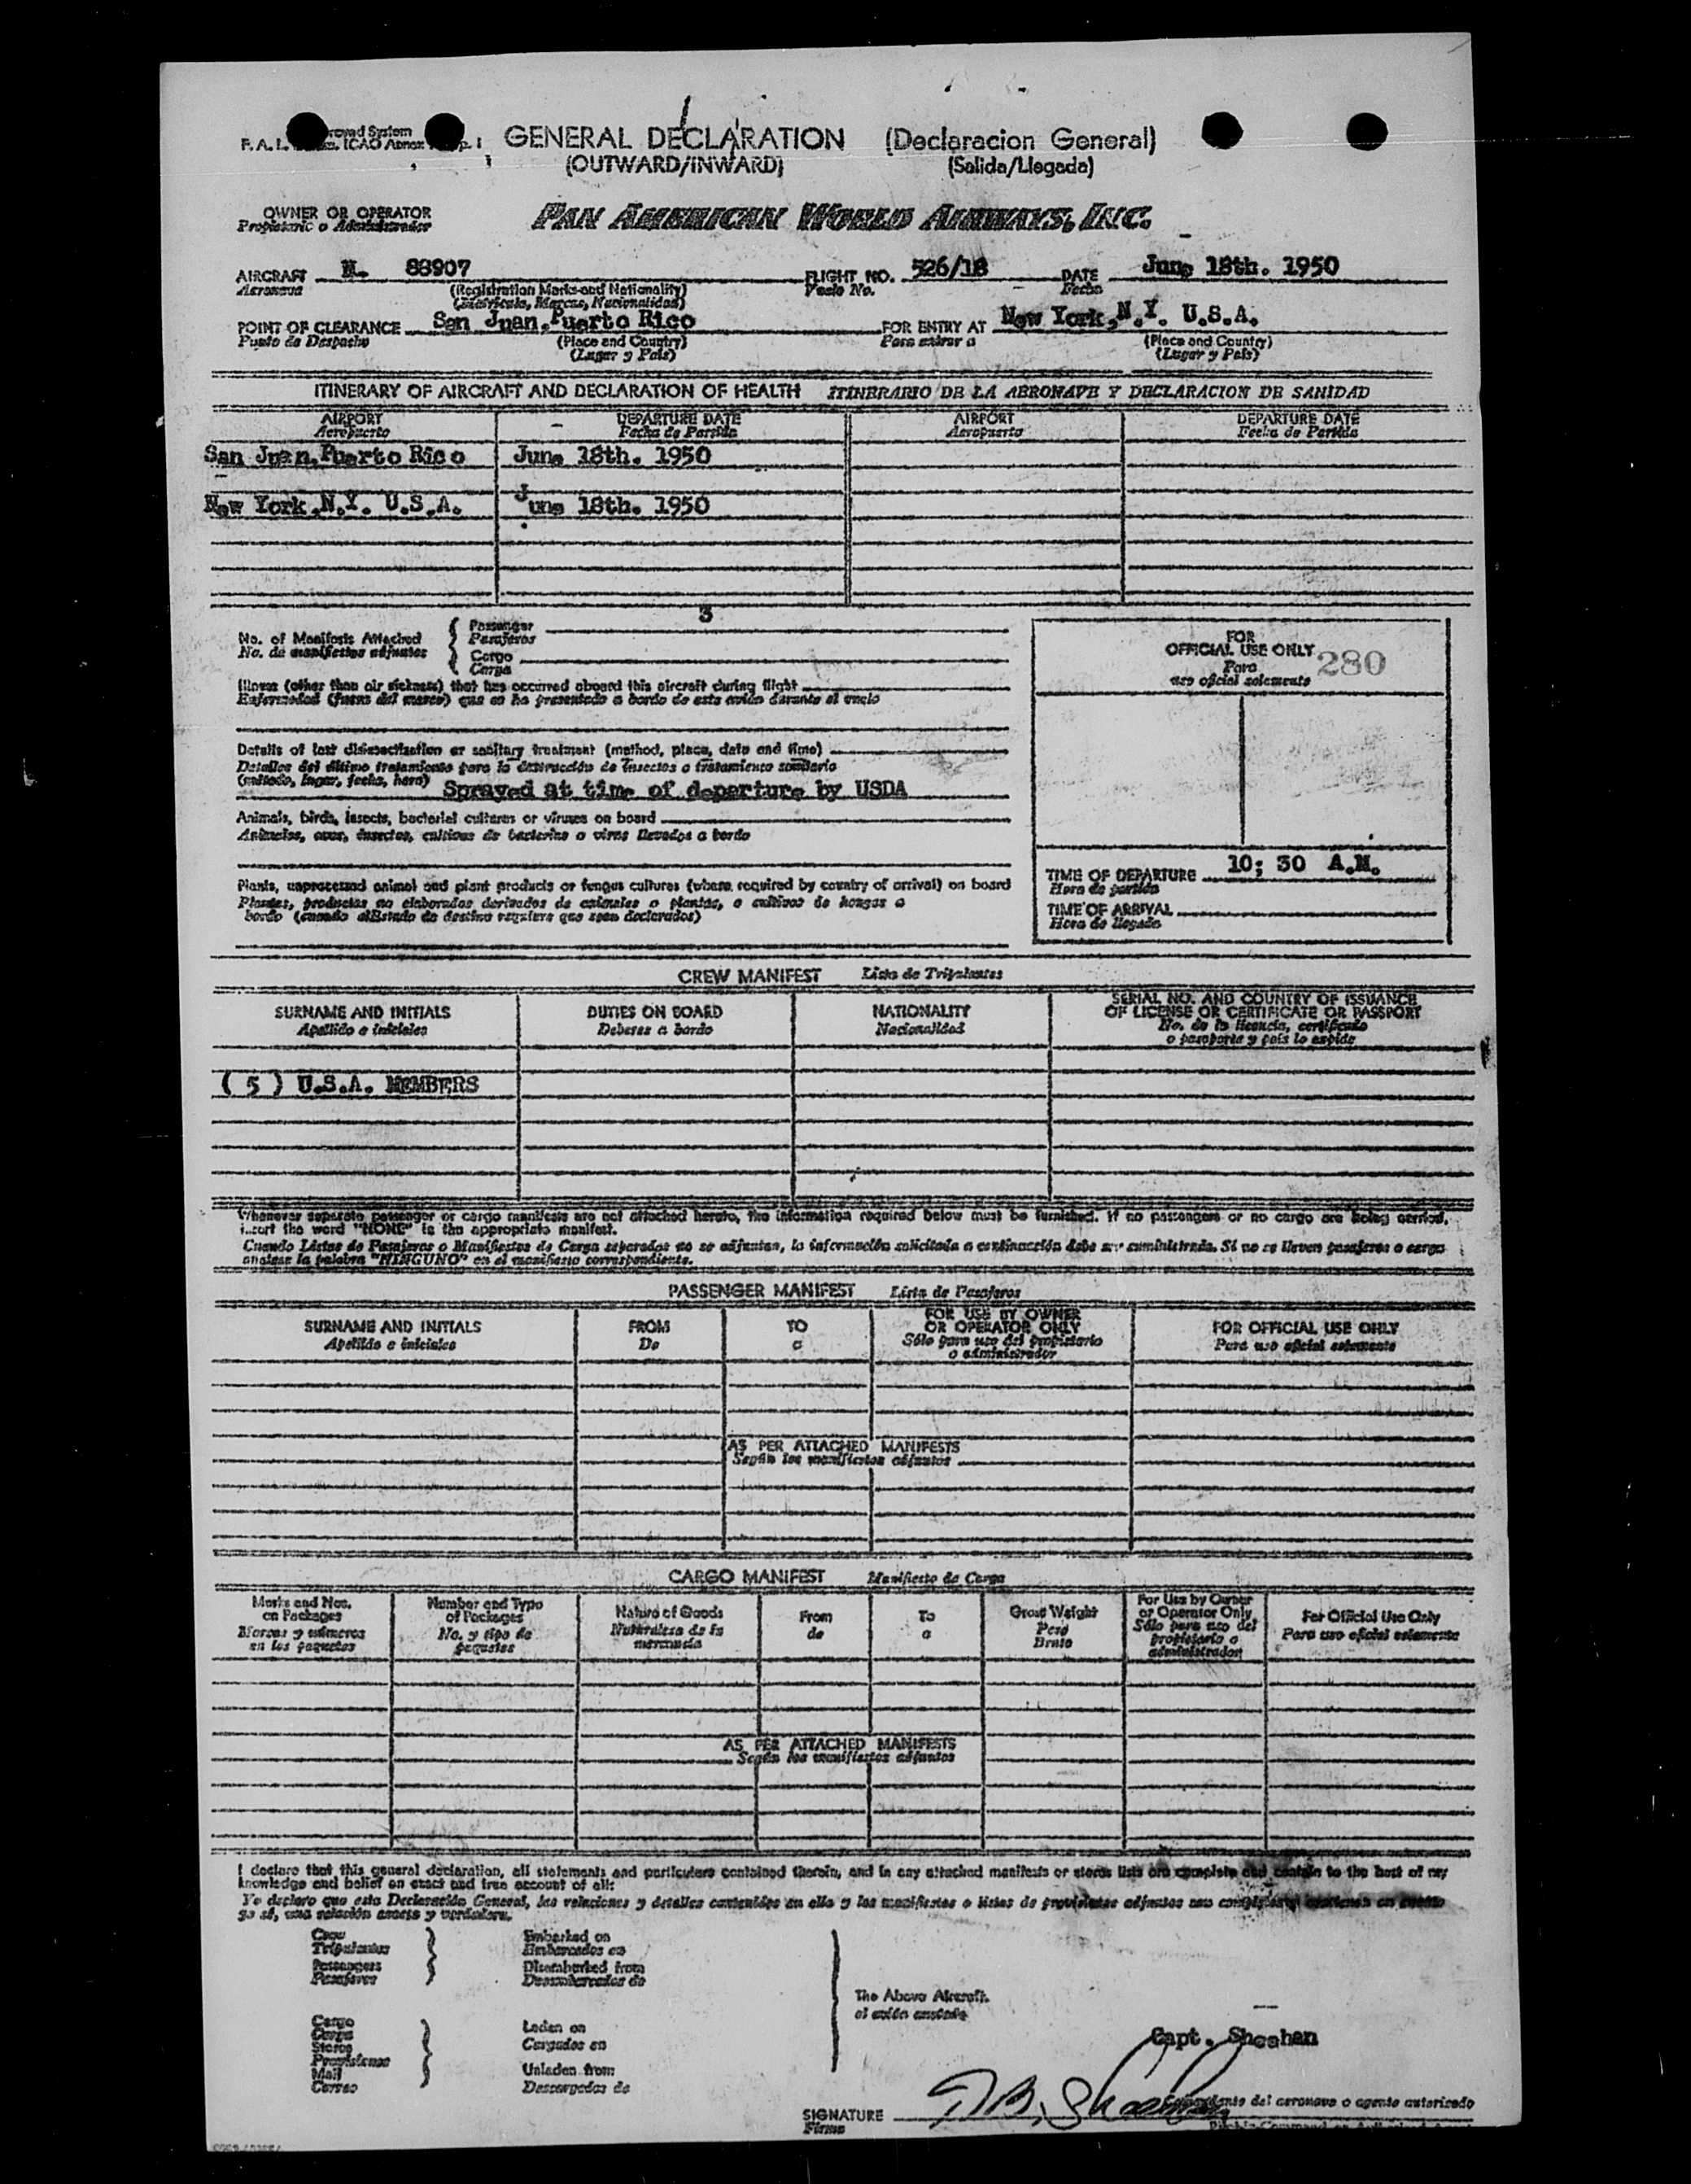 F. A. L. System ICAO Annex
GENERAL DECLARATION (Declaracion General)
(OUTWARD/INWARD) (Salida/Llegada)
OWNER OR OPERATOR PAN AMERICAN WORLD AIRWAYS, INC.
Propietario o Administrador
AIRCRAFT N. 88907 FLIGHT NO. 526/18 DATE June 18th. 1950
Aeronave (Registration Marks and Nationality) Vuelo No. Fecha
(Matrícula, Marcas, Nacionalidad)
POINT OF CLEARANCE San Juan, Puerto Rico FOR ENTRY AT New York, N.Y. U.S.A.
Punto de Despacho (Place and Country) Para entrar a (Place and Country)
(Lugar y País) (Lugar y País)
ITINERARY OF AIRCRAFT AND DECLARATION OF HEALTH ITINERARIO DE LA AERONAVE Y DECLARACION DE SANIDAD
AIRPORT DEPARTURE DATE AIRPORT DEPARTURE DATE
Aeropuerto Fecha de Partida Aeropuerto Fecha de Partida
San Juan, Puerto Rico June 18th. 1950
New York, N.Y. U.S.A. June 18th. 1950
3
No. of Manifests Attached Passenger
No. de manifiestos adjuntos Pasajeros
Cargo
Carga
FOR
OFFICIAL USE ONLY 280
Para
uso oficial solamente
Illness (other than air sickness) that has occurred aboard this aircraft during flight
Enfermedad (fuera del mareo) que se ha presentado a bordo de este avión durante el vuelo
Details of last disinsectization or sanitary treatment (method, place, date and time)
Detalles del último tratamiento para la destrucción de insectos o tratamiento sanitario
(método, lugar, fecha, hora) Sprayed at time of departure by USDA
Animals, birds, insects, bacterial cultures or viruses on board
Animales, aves, insectos, cultivos de bacterias o virus llevados a bordo
Plants, unprocessed animal and plant products or fungus cultures (where required by country of arrival) on board
Plantas, productos no elaborados derivados de animales o plantas, o cultivos de hongos a
bordo (cuando el Estado de destino requiera que sean declarados)
TIME OF DEPARTURE 10; 30 A.M.
Hora de partida
TIME OF ARRIVAL
Hora de llegada
CREW MANIFEST Lista de Tripulantes
SURNAME AND INITIALS DUTIES ON BOARD NATIONALITY SERIAL NO. AND COUNTRY OF ISSUANCE
Apellido e iniciales Deberes a bordo Nacionalidad OF LICENSE OR CERTIFICATE OR PASSPORT
No. de la licencia, certificado
o pasaporte y país lo expide
( 5 ) U.S.A. MEMBERS
Whenever separate passenger or cargo manifests are not attached hereto, the information required below must be furnished. If no passengers or no cargo are being carried,
insert the word "NONE" in the appropriate manifest.
Cuando Listas de Pasajeros o Manifiestos de Carga separados no se adjuntan, la información solicitada a continuación debe ser suministrada. Si no se llevan pasajeros o carga
anótese la palabra "NINGUNO" en el manifiesto correspondiente.
PASSENGER MANIFEST Lista de Pasajeros
SURNAME AND INITIALS FROM TO FOR USE BY OWNER FOR OFFICIAL USE ONLY
Apellido e iniciales De a OR OPERATOR ONLY Para uso oficial solamente
Sólo para uso del propietario
o administrador
AS PER ATTACHED MANIFESTS
Según los manifiestos adjuntos
CARGO MANIFEST Manifiesto de Carga
Marks and Nos. Number and Type Nature of Goods From To Gross Weight For Use by Owner For Official Use Only
on Packages of Packages Naturaleza de la de a Peso or Operator Only Para uso oficial solamente
Marcas y números No. y tipo de mercancía Bruto Sólo para uso del
en los paquetes paquetes propietario o
administrador
AS PER ATTACHED MANIFESTS
Según los manifiestos adjuntos
I declare that this general declaration, all statements and particulars contained therein, and in any attached manifests or stores lists are complete and contain to the best of my
knowledge and belief an exact and true account of all:
Yo declaro que esta Declaración General, las relaciones y detalles contenidos en ella y los manifiestos o listas de provisiones adjuntos son completos y contienen en cuanto
yo sé, una relación exacta y verdadera.
Crew Embarked on
Tripulantes Embarcados en
Passengers Disembarked from
Pasajeros Desembarcados de
The Above Aircraft.
el avión anotado
Cargo Laden on
Carga Cargados en
Stores
Provisiones Unladen from
Mail Descargados de
Correo
Capt. Sheehan
Comandante del aeronave o agente autorizado
SIGNATURE
Firma